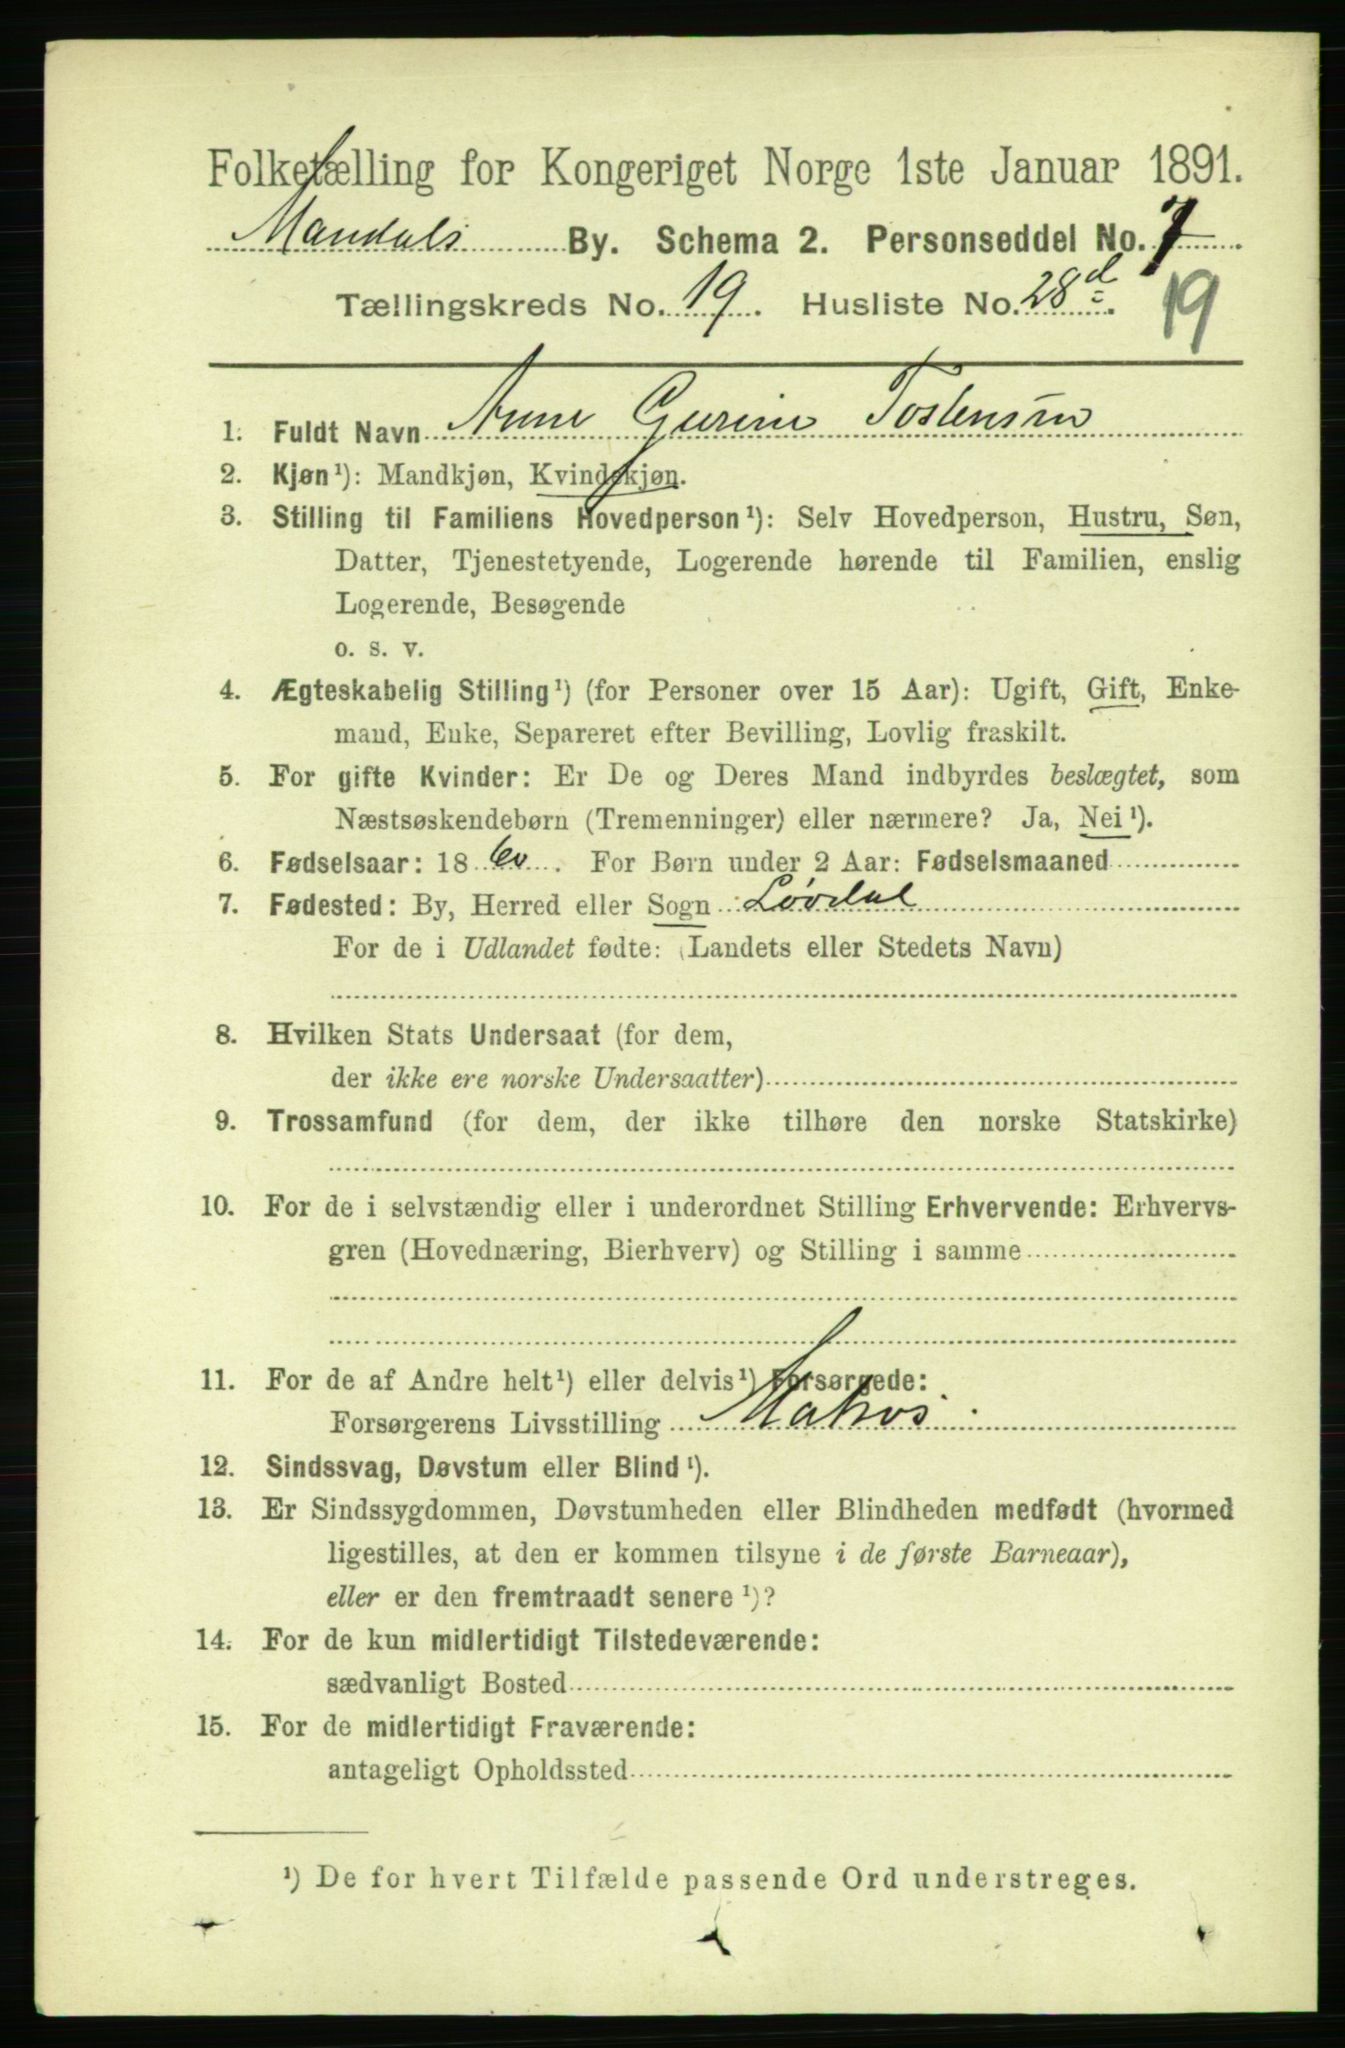 Folketælling for Kongeriget Norge 1ste Januar 1891.
Mandals By. Schema 2. Personseddel No. 7
Tællingskreds No. 19. Husliste No. 28d.
19
1. Fuldt Navn Anne Gurine Tostensen
2. Kjøn¹): Mandkjøn, Kvindekjøn.
3. Stilling til Familiens Hovedperson¹): Selv Hovedperson, Hustru, Søn,
Datter, Tjenestetyende, Logerende hørende til Familien, enslig
Logerende, Besøgende
o. s. v.
4. Ægteskabelig Stilling¹) (for Personer over 15 Aar): Ugift, Gift, Enke-
mand, Enke, Separeret efter Bevilling, Lovlig fraskilt.
5. For gifte Kvinder: Er De og Deres Mand indbyrdes beslægtet, som
Næstsøskendebørn (Tremenninger) eller nærmere? Ja, Nei¹).
6. Fødselsaar: 1860. For Børn under 2 Aar: Fødselsmaaned
7. Fødested: By, Herred eller Sogn Løvdal
For de i Udlandet fødte: (Landets eller Stedets Navn)
8. Hvilken Stats Undersaat (for dem,
der ikke ere norske Undersaatter)
9. Trossamfund (for dem, der ikke tilhøre den norske Statskirke)
10. For de i selvstændig eller i underordnet Stilling Erhvervende: Erhvervs-
gren (Hovednæring, Bierhverv) og Stilling i samme
11. For de af Andre helt¹) eller delvis¹) Forsørgede:
Forsørgerens Livsstilling Matros.
12. Sindssvag, Døvstum eller Blind¹).
13. Er Sindssygdommen, Døvstumheden eller Blindheden medfødt (hvormed
ligestilles, at den er kommen tilsyne i de første Barneaar),
eller er den fremtraadt senere¹)?
14. For de kun midlertidigt Tilstedeværende:
sædvanligt Bosted
15. For de midlertidigt Fraværende:
antageligt Opholdssted
¹) De for hvert Tilfælde passende Ord understreges.